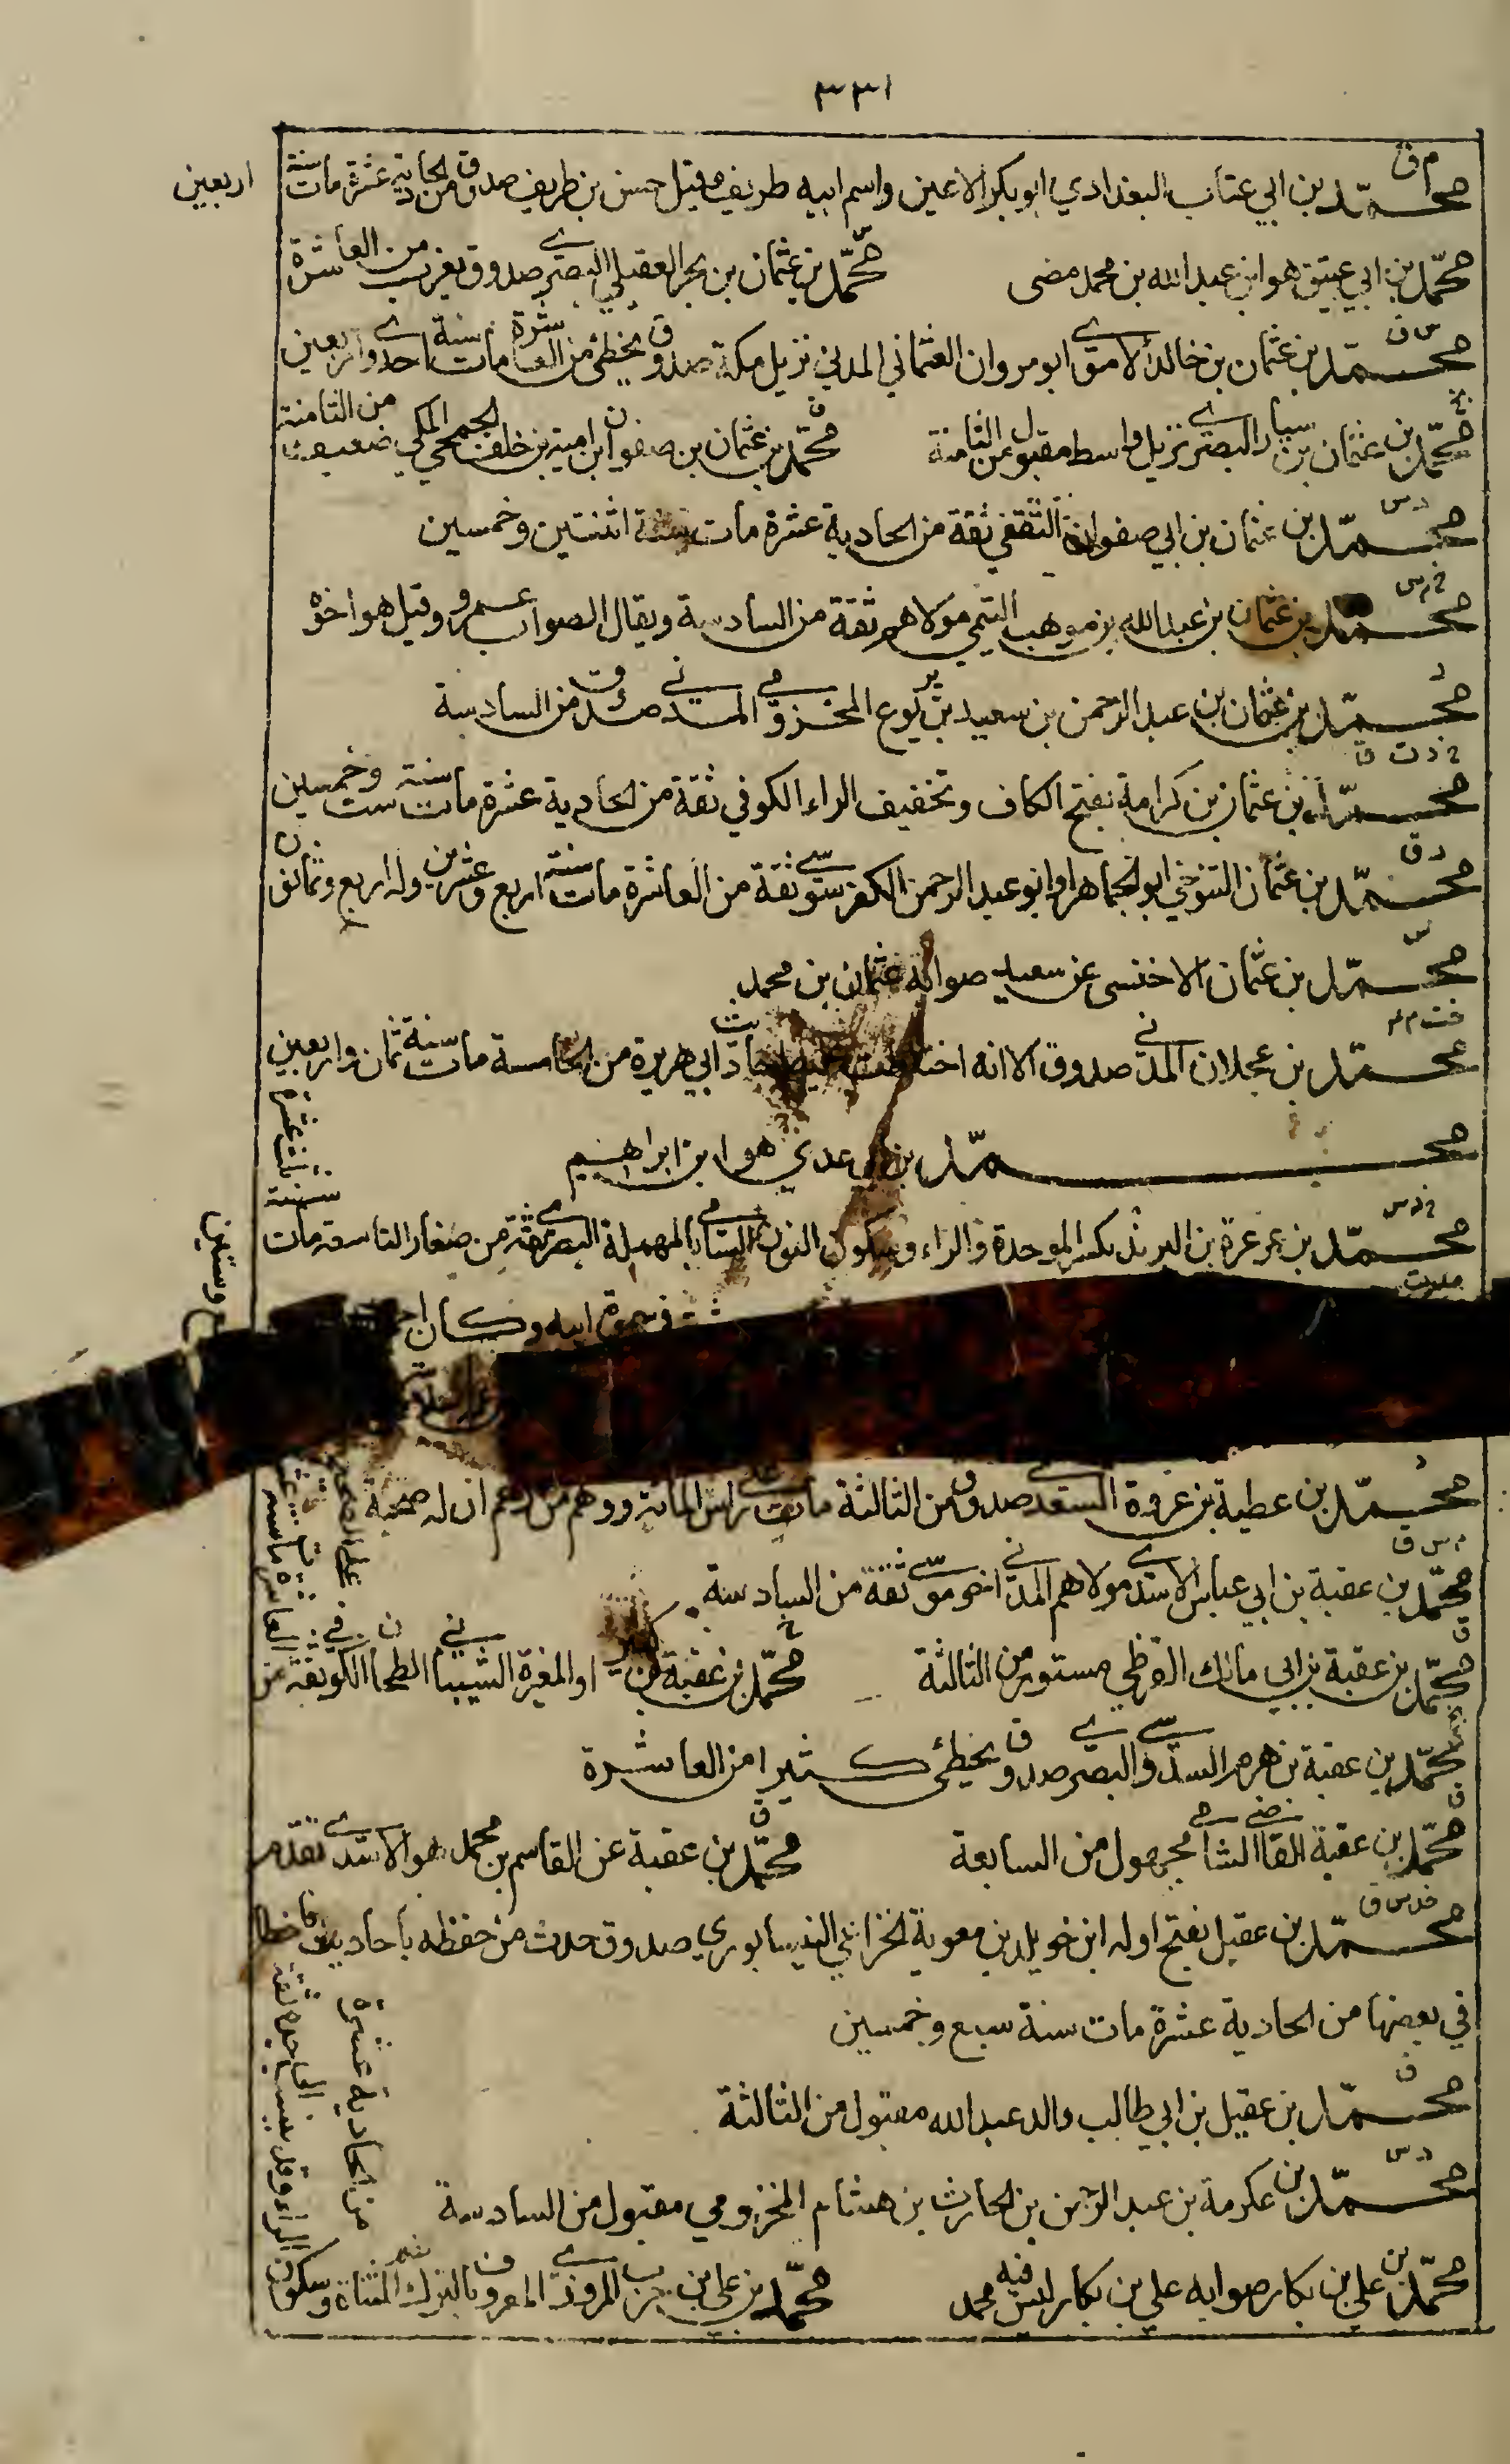 ٣٣١
م ق
محمد بن ابي عتاب البغدادي ابو بكر الاعين واسم ابيه طريف وقيل حسن بن طريف صدوق من الحادية عشرة مات سنة
اربعين
محمد بن ابي عتيق هو ابن عبد الله بن محمد مضى
محمد بن عثمان بن بحر العقيلي البصري صدوق يغرب من العاشرة
س ق
محمد بن عثمان بن خالد الاموي ابو مروان العثماني المدني نزيل مكة صدوق يخطئ من العاشرة مات سنة احدى واربعين
محمد بن عثمان بن سيار البصري نزيل واسط مقبول من الثامنة
ق
محمد بن عثمان بن صفوان بن امية بن خلف الجمحي المكي ضعيف من الثامنة
د س
محمد بن عثمان بن ابي صفوان الثقفي ثقة من الحادية عشرة مات سنة اثنتين وخمسين
خ م س
محمد بن عثمان بن عبد الله بن موهب التيمي مولاهم ثقة من السادسة ويقال الصواب عمرو وقيل هو اخوه
د
محمد بن عثمان بن عبد الرحمن بن سعيد بن يربوع المخزومي المدني صدوق من السادسة
خ د ت ق
محمد بن عثمان بن كرامة بفتح الكاف وتخفيف الراء الكوفي ثقة من الحادية عشرة مات سنة ست وخمسين
د ق
محمد بن عثمان التنوخي ابو الجماهر او ابو عبد الرحمن الكفرسوسي ثقة من العاشرة مات سنة اربع وعشرين وله اربع وثمانون
س
محمد بن عثمان الاخنسي عن سعيد صوابه عثمان بن محمد
خت م ٤
محمد بن عجلان المدني صدوق الا انه اختلطت عليه احاديث ابي هريرة من الخامسة مات سنة ثمان واربعين
محمد بن ابي عدي هو ابن ابراهيم
م د س
محمد بن عرعرة بن البرند بكسر الموحدة والراء وسكون النون السامي بالمهملة البصري ثقة من صغار التاسعة مات
سنة ثلث عشرة
ابيه وكان
د
محمد بن عطية بن عروة السعدي صدوق من الثالثة مات على راس المائة ووهم من زعم ان له صحبة
م س ق
محمد بن عقبة بن ابي عياش الاسدي مولاهم المدني اخو موسى ثقة من السادسة
ق
محمد بن عقبة بن ابي مالك القرظي مستور من الثالثة
خ
محمد بن عقبة بن كثير او المغيرة الشيباني الطحان الكوفي ثقة من
محمد بن عقبة بن هرم السدوسي البصري صدوق يخطئ كثيرا من العاشرة
ق
محمد بن عقبة القاضي الشامي مجهول من السابعة
ق
محمد بن عقبة عن القاسم بن محمد هو الاسدي تقدم
خد س ق
محمد بن عقيل بفتح اوله ابن خويلد بن معوية الخزاعي النيسابوري صدوق حدث من حفظه باحاديث فاخطا
في بعضها من الحادية عشرة مات سنة سبع وخمسين
ق
محمد بن عقيل بن ابي طالب والد عبد الله مقبول من الثالثة
د س
محمد بن عكرمة بن عبد الرحمن بن الحارث بن هشام المخزومي مقبول من السادسة
محمد بن علي بن بكار صوابه علي بن بكار ليس فيه محمد
محمد بن علي بن حرب المروزي المعروف بالترك بضم المثناة وسكون
الراء وقد ينسب الى جده ثقة
من الحادية عشرة